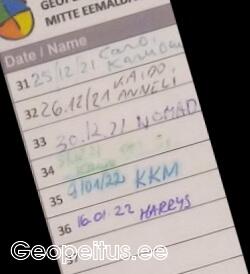 GEOPE
MITTE EEMALDA
Date / Name
31 25/12/21
32 26.12/21 KAIDO ANNELI
33 30.12.21 NOMAD
34
35 9/01/22 KKM
36 16.01.22 HARRYS
37
Geopeitus.ee